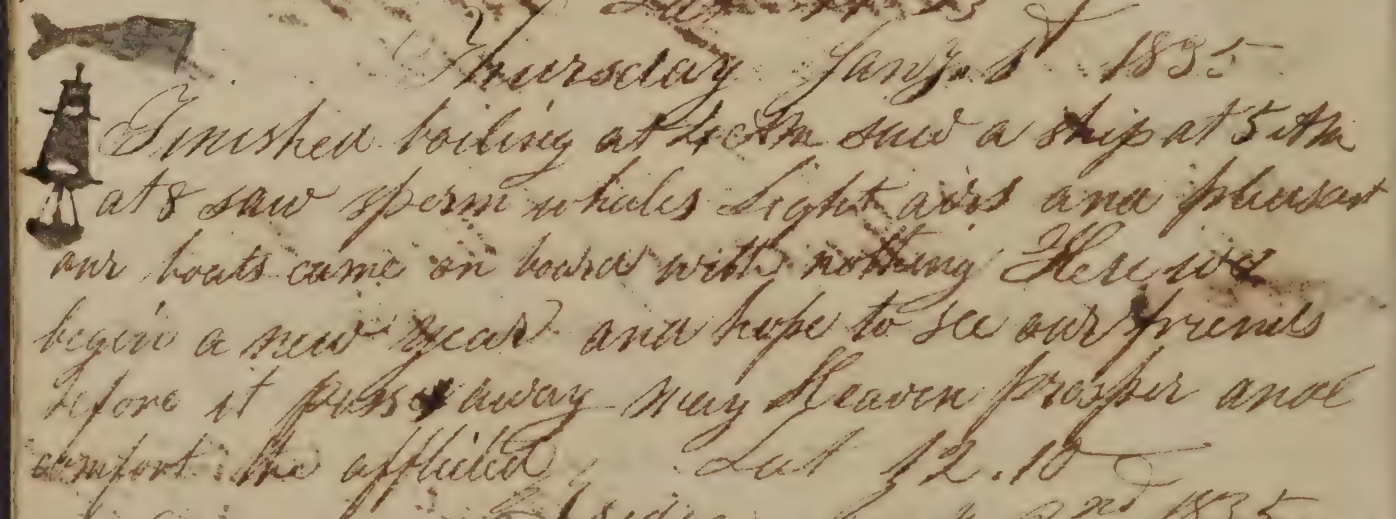 Thursday Jany. 1st 1835
Finished boiling at 4 AM saw a ship at 5 AM
at 8 saw sperm whales Light airs and pleasant
our boats came on board with nothing Here we
begin a new year and hope to see our friends
before it passes away may Heaven prosper and
comfort the afflicted Lat 32.10
2nd 1835